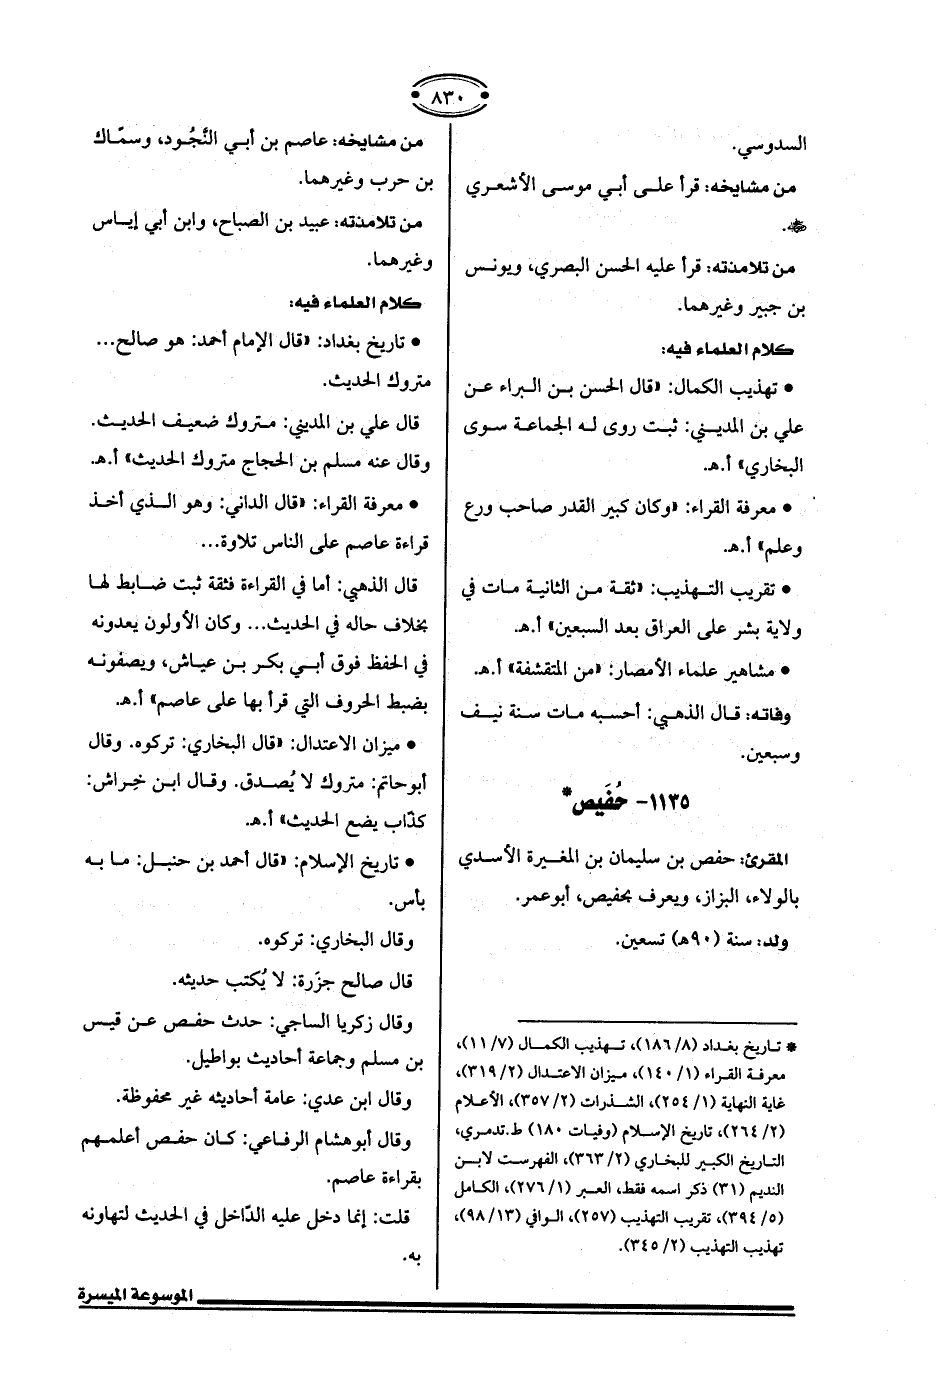 ٨٣٠
السدوسي.
من مشايخه: قرأ على أبي موسى الأشعري
ﷺ.
من تلامذته: قرأ عليه الحسن البصري، ويونس
بن جبير وغيرهما.
كلام العلماء فيه:
• تهذيب الكمال: «قال الحسن بن البراء عن
علي بن المديني: ثبت روى له الجماعة سوى
البخاري» أ.هـ.
• معرفة القراء: «وكان كبير القدر صاحب ورع
وعلم» أ.هـ.
• تقريب التهذيب: «ثقة من الثانية مات في
ولاية بشر على العراق بعد السبعين» أ.هـ.
• مشاهير علماء الأمصار: «من المتقشفة» أ.هـ.
وفاته: قال الذهبي: أحسبه مات سنة نيف
وسبعين.
١١٣٥- حُفَيص*
المقرئ: حفص بن سليمان بن المغيرة الأسدي
بالولاء، البزاز، ويعرف بحفيص، أبوعمر.
ولد: سنة (٩٠هـ) تسعين.
* تاريخ بغداد (٨/ ١٨٦)، تهذيب الكمال (٧/ ١١)،
معرفة القراء (١/ ١٤٠)، ميزان الاعتدال (٢/ ٣١٩)،
غاية النهاية (١/ ٢٥٤)، الشذرات (٢/ ٣٥٧)، الأعلام
(٢/ ٢٦٤)، تاريخ الإسلام (وفيات ١٨٠) ط.تدمري،
التاريخ الكبير للبخاري (٢/ ٣٦٣)، الفهرست لابن
النديم (٣١) ذكر اسمه فقط، العبر (١/ ٢٧٦)، الكامل
(٥/ ٣٩٤)، تقريب التهذيب (٢٥٧)، الوافي (١٣/ ٩٨)،
تهذيب التهذيب (٢/ ٣٤٥).
من مشايخه: عاصم بن أبي النَّجُود، وسمّاك
بن حرب وغيرهما.
من تلامذته: عبيد بن الصباح، وابن أبي إياس
وغيرهما.
كلام العلماء فيه:
• تاريخ بغداد: «قال الإمام أحمد: هو صالح...
متروك الحديث.
قال علي بن المديني: متروك ضعيف الحديث.
وقال عنه مسلم بن الحجاج متروك الحديث» أ.هـ.
• معرفة القراء: «قال الداني: وهو الذي أخذ
قراءة عاصم على الناس تلاوة...
قال الذهبي: أما في القراءة فثقة ثبت ضابط لها
بخلاف حاله في الحديث... وكان الأولون يعدونه
في الحفظ فوق أبي بكر بن عياش، ويصفونه
بضبط الحروف التي قرأ بها على عاصم» أ.هـ.
• ميزان الاعتدال: «قال البخاري: تركوه. وقال
أبوحاتم: متروك لا يُصدق. وقال ابن خِراش:
كذّاب يضع الحديث» أ.هـ.
• تاريخ الإسلام: «قال أحمد بن حنبل: ما به
بأس.
وقال البخاري: تركوه.
قال صالح جزَرة: لا يُكتب حديثه.
وقال زكريا الساجي: حدث حفص عن قيس
بن مسلم وجماعة أحاديث بواطيل.
وقال ابن عدي: عامة أحاديثه غير محفوظة.
وقال أبوهشام الرفاعي: كان حفص أعلمهم
بقراءة عاصم.
قلت: إنما دخل عليه الدّاخل في الحديث لتهاونه
به.
الموسوعة الميسرة